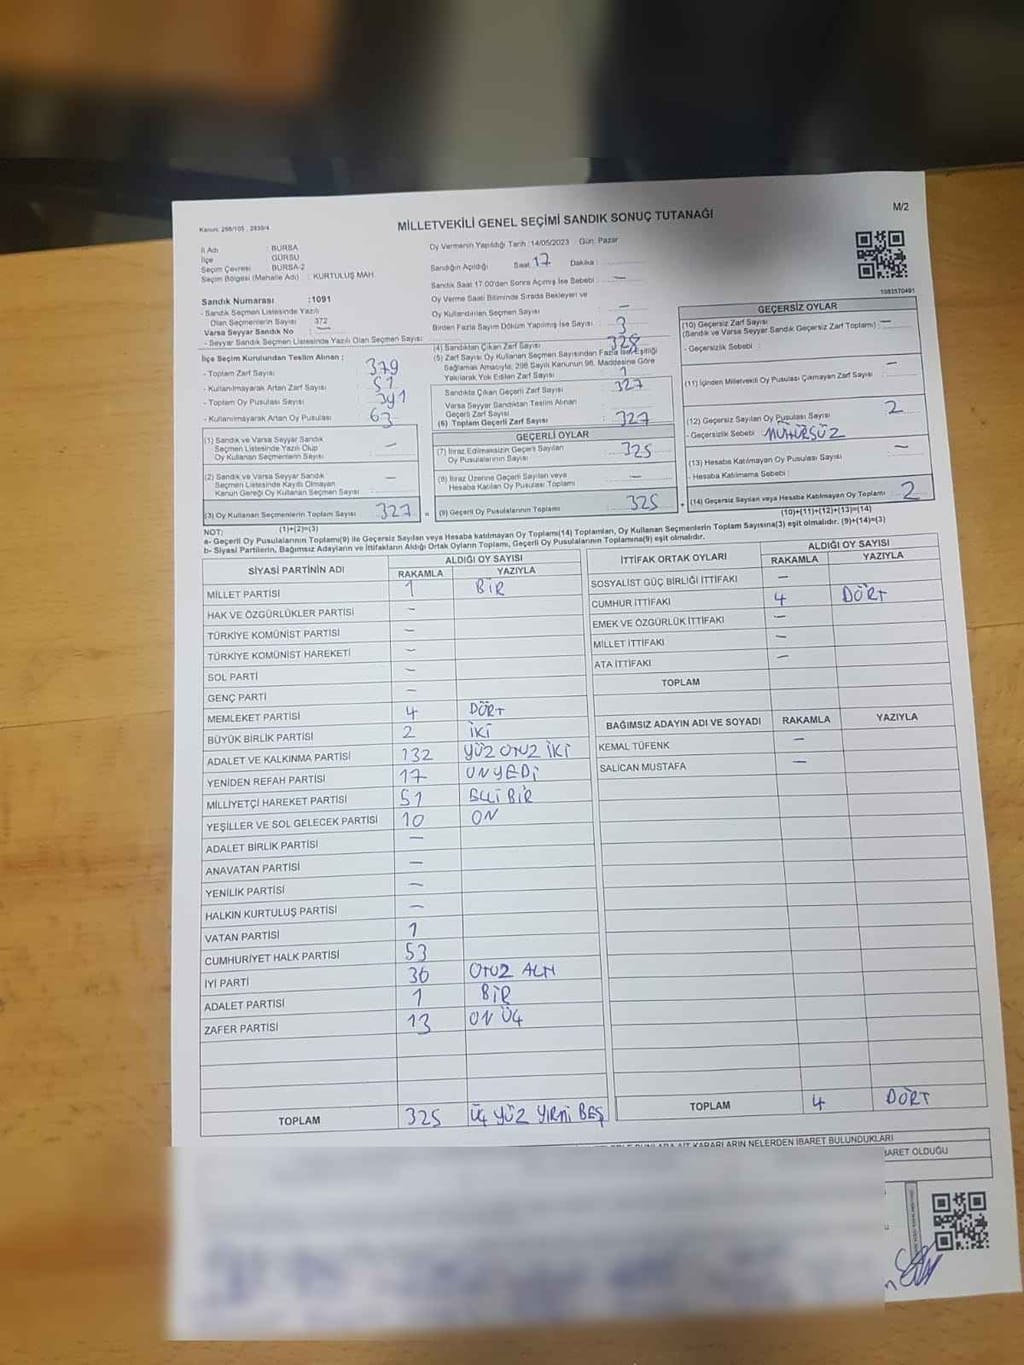 Kanun: 298/105 , 2839/4
MİLLETVEKİLİ GENEL SEÇİMİ SANDIK SONUÇ TUTANAĞI
M/2
İl Adı : BURSA
İlçe : GÜRSU
Seçim Çevresi : BURSA-2
Seçim Bölgesi (Mahalle Adı) : KURTULUŞ MAH.
Sandık Numarası : 1091
- Sandık Seçmen Listesinde Yazılı
Olan Seçmenlerin Sayısı : 372
Varsa Seyyar Sandık No : —
- Seyyar Sandık Seçmen Listesinde Yazılı Olan Seçmen Sayısı:
İlçe Seçim Kurulundan Teslim Alınan ;
- Toplam Zarf Sayısı : 379
- Kullanılmayarak Artan Zarf Sayısı : 51
- Toplam Oy Pusulası Sayısı : 391
- Kullanılmayarak Artan Oy Pusulası : 63
(1) Sandık ve Varsa Seyyar Sandık
Seçmen Listesinde Yazılı Olup
Oy Kullanan Seçmenlerin Sayısı : —
(2) Sandık ve Varsa Seyyar Sandık
Seçmen Listesinde Kayıtlı Olmayan
Kanun Gereği Oy Kullanan Seçmen Sayısı : —
(3) Oy Kullanan Seçmenlerin Toplam Sayısı : 327
(1)+(2)=(3)
Oy Vermenin Yapıldığı Tarih : 14/05/2023 ; Gün: Pazar
Sandığın Açıldığı Saat: 17 Dakika :
Sandık Saat 17.00'den Sonra Açılmış İse Sebebi : —
Oy Verme Saati Bitiminde Sırada Bekleyen ve
Oy Kullandırılan Seçmen Sayısı : —
Birden Fazla Sayım Döküm Yapılmış İse Sayısı : 3
(4) Sandıktan Çıkan Zarf Sayısı : 328
(5) Zarf Sayısı Oy Kullanan Seçmen Sayısından Fazla İse Eşitliği
Sağlamak Amacıyla; 298 Sayılı Kanunun 98. Maddesine Göre
Yakılarak Yok Edilen Zarf Sayısı : 1
Sandıkta Çıkan Geçerli Zarf Sayısı : 327
Varsa Seyyar Sandıktan Teslim Alınan
Geçerli Zarf Sayısı :
(6) Toplam Geçerli Zarf Sayısı : 327
GEÇERLİ OYLAR
(7) İtiraz Edilmeksizin Geçerli Sayılan
Oy Pusulalarının Sayısı : 325
(8) İtiraz Üzerine Geçerli Sayılan veya
Hesaba Katılan Oy Pusulası Toplamı : —
(9) Geçerli Oy Pusulalarının Toplamı : 325
1083570491
GEÇERSİZ OYLAR
(10) Geçersiz Zarf Sayısı
(Sandık ve Varsa Seyyar Sandık Geçersiz Zarf Toplamı) : —
- Geçersizlik Sebebi :
(11) İçinden Milletvekili Oy Pusulası Çıkmayan Zarf Sayısı : —
(12) Geçersiz Sayılan Oy Pusulası Sayısı : 2
- Geçersizlik Sebebi : MÜHÜRSÜZ
(13) Hesaba Katılmayan Oy Pusulası Sayısı : —
- Hesaba Katılmama Sebebi :
(14) Geçersiz Sayılan veya Hesaba Katılmayan Oy Toplamı : 2
(10)+(11)+(12)+(13)=(14)
NOT:
a- Geçerli Oy Pusulalarının Toplamı(9) ile Geçersiz Sayılan veya Hesaba katılmayan Oy Toplamı(14) Toplamları, Oy Kullanan Seçmenlerin Toplam Sayısına(3) eşit olmalıdır. (9)+(14)=(3)
b- Siyasi Partilerin, Bağımsız Adayların ve İttifakların Aldığı Ortak Oyların Toplamı, Geçerli Oy Pusulalarının Toplamına(9) eşit olmalıdır.
SİYASİ PARTİNİN ADI ALDIĞI OY SAYISI
RAKAMLA YAZIYLA
MİLLET PARTİSİ 1 BİR
HAK VE ÖZGÜRLÜKLER PARTİSİ —
TÜRKİYE KOMÜNİST PARTİSİ —
TÜRKİYE KOMÜNİST HAREKETİ —
SOL PARTİ —
GENÇ PARTİ —
MEMLEKET PARTİSİ 4 DÖRT
BÜYÜK BİRLİK PARTİSİ 2 İKİ
ADALET VE KALKINMA PARTİSİ 132 YÜZ OTUZ İKİ
YENİDEN REFAH PARTİSİ 17 ONYEDİ
MİLLİYETÇİ HAREKET PARTİSİ 51 ELLİ BİR
YEŞİLLER VE SOL GELECEK PARTİSİ 10 ON
ADALET BİRLİK PARTİSİ —
ANAVATAN PARTİSİ —
YENİLİK PARTİSİ —
HALKIN KURTULUŞ PARTİSİ —
VATAN PARTİSİ 1
CUMHURİYET HALK PARTİSİ 53
İYİ PARTİ 36 OTUZ ALTI
ADALET PARTİSİ 1 BİR
ZAFER PARTİSİ 13 ON ÜÇ
TOPLAM 325 ÜÇ YÜZ YİRMİ BEŞ
İTTİFAK ORTAK OYLARI ALDIĞI OY SAYISI
RAKAMLA YAZIYLA
SOSYALİST GÜÇ BİRLİĞİ İTTİFAKI —
CUMHUR İTTİFAKI 4 DÖRT
EMEK VE ÖZGÜRLÜK İTTİFAKI —
MİLLET İTTİFAKI —
ATA İTTİFAKI —
TOPLAM
BAĞIMSIZ ADAYIN ADI VE SOYADI RAKAMLA YAZIYLA
KEMAL TÜFENK —
SALİCAN MUSTAFA —
TOPLAM 4 DÖRT
KARARLARIN NELERDEN İBARET BULUNDUKLARI
İBARET OLDUĞU